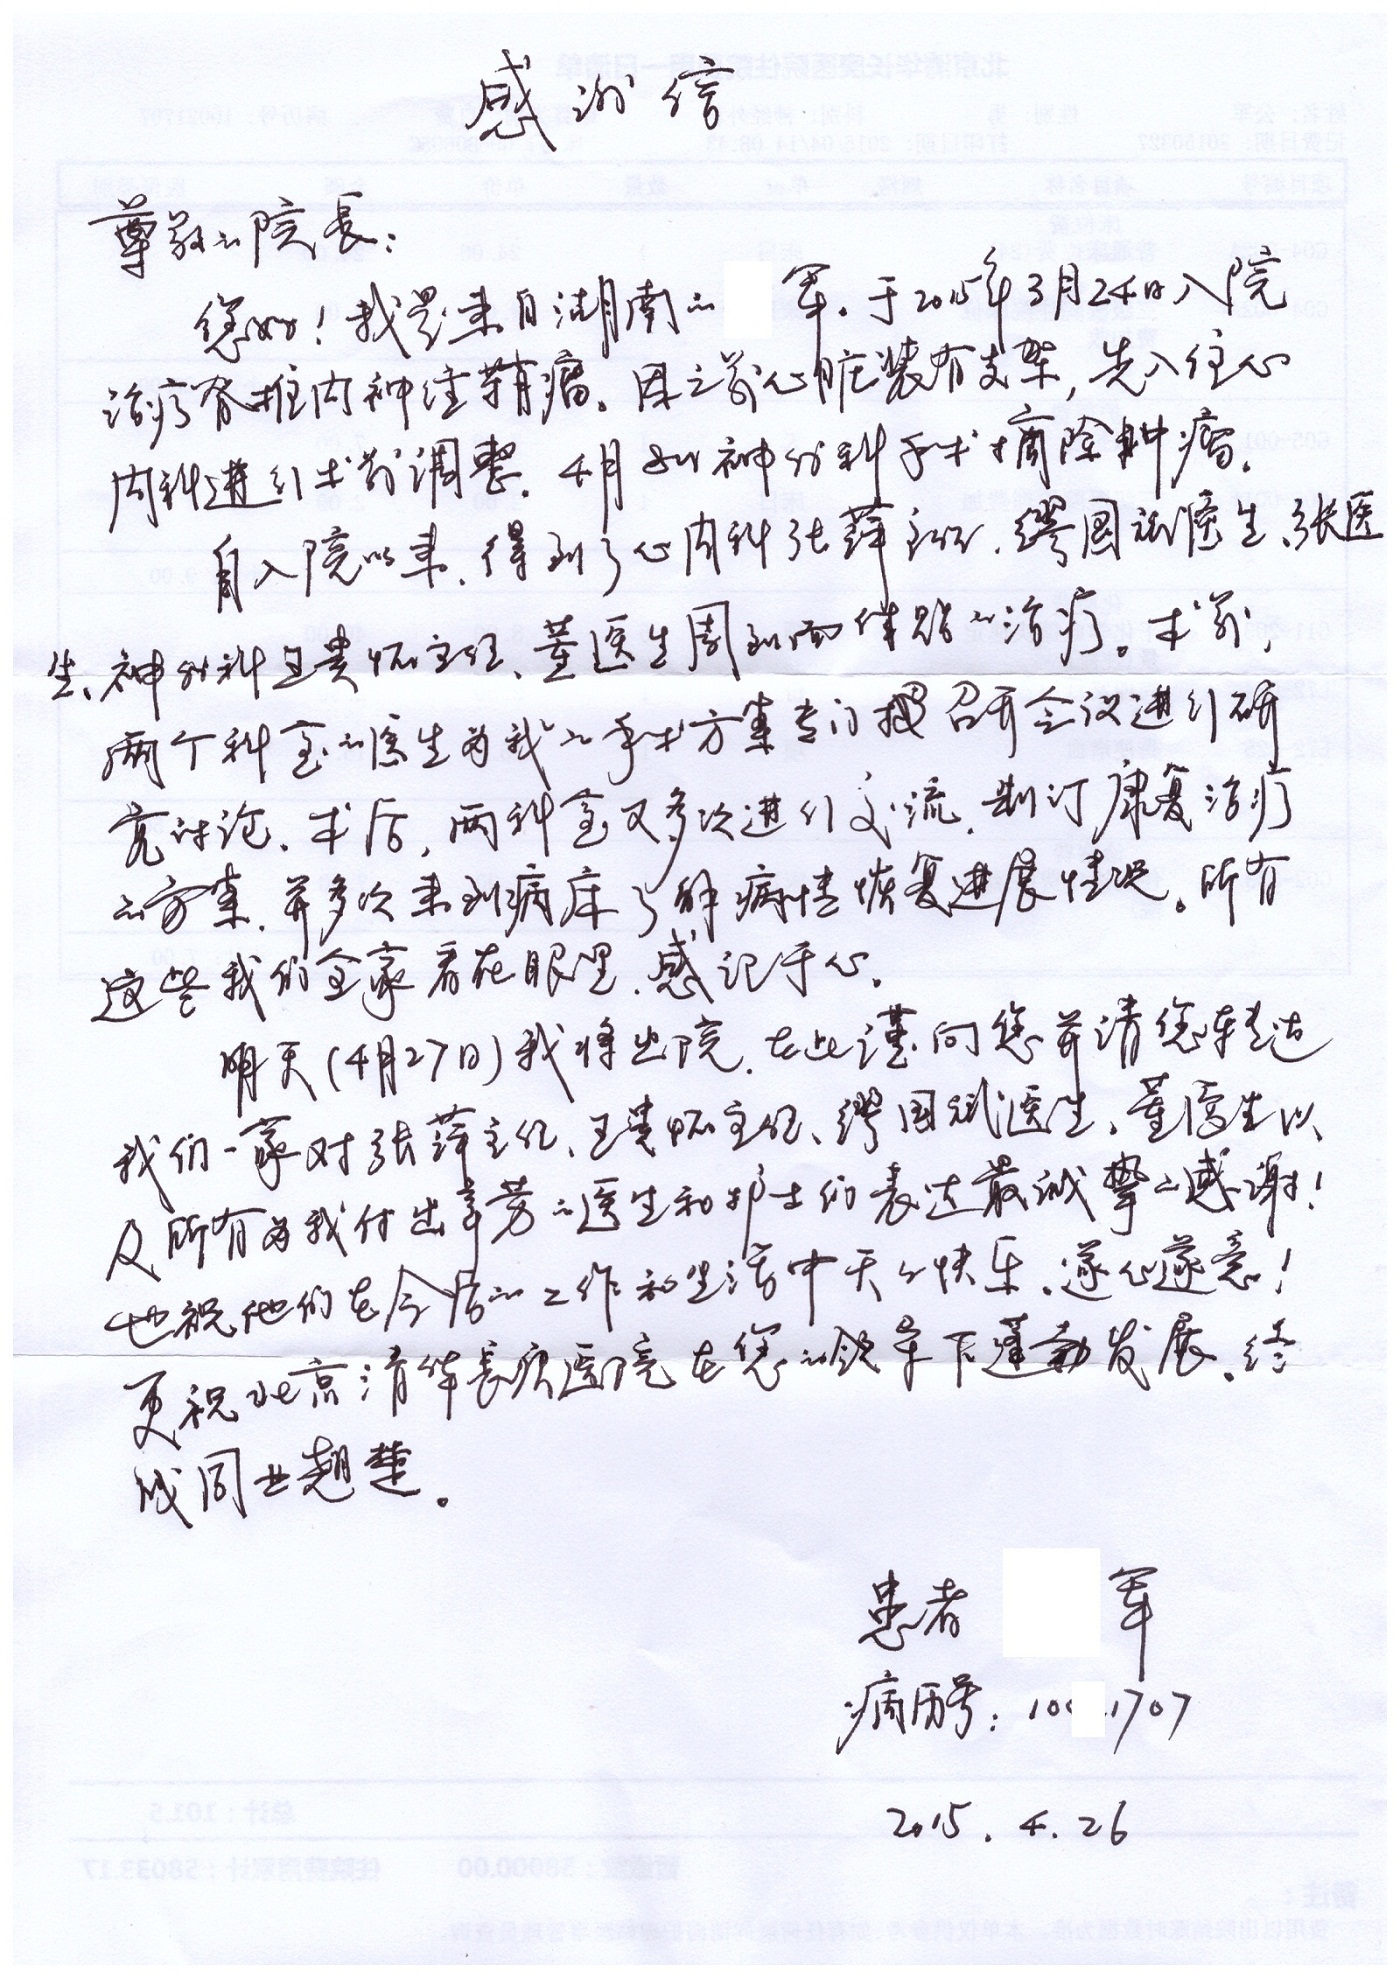 感谢信
尊敬的院长：
您好！我是来自湖南的 军。于2015年3月24日入院
治疗脊椎内神经鞘瘤。因之前心脏装有支架，先入住心
内科进行术前调整。4月 神外科手术摘除肿瘤。
自入院以来，得到了心内科张萍主任、缪国斌医生、张医
生、神外科王贵怀主任、董医生周到而 的治疗。术前，
两个科室的医生为我的手术方案专门召开会议进行研
究讨论。术后，两科室又多次进行交流，制订康复治疗
的方案，并多次来到病床了解病情恢复进展情况。所有
这些我们全家看在眼里，感记于心。
明天(4月27日)我将出院，在此谨向您并请您转达
我们一家对张萍主任、王贵怀主任、缪国斌医生、董医生以
及所有为我付出辛劳的医生和护士们表达最诚挚的感谢！
也祝他们在今后的工作和生活中天天快乐、遂心遂意！
更祝北京清华长庚医院在您的领导下蓬勃发展，终
成同业翘楚。
患者 军
病历号：10 1707
2015.4.26